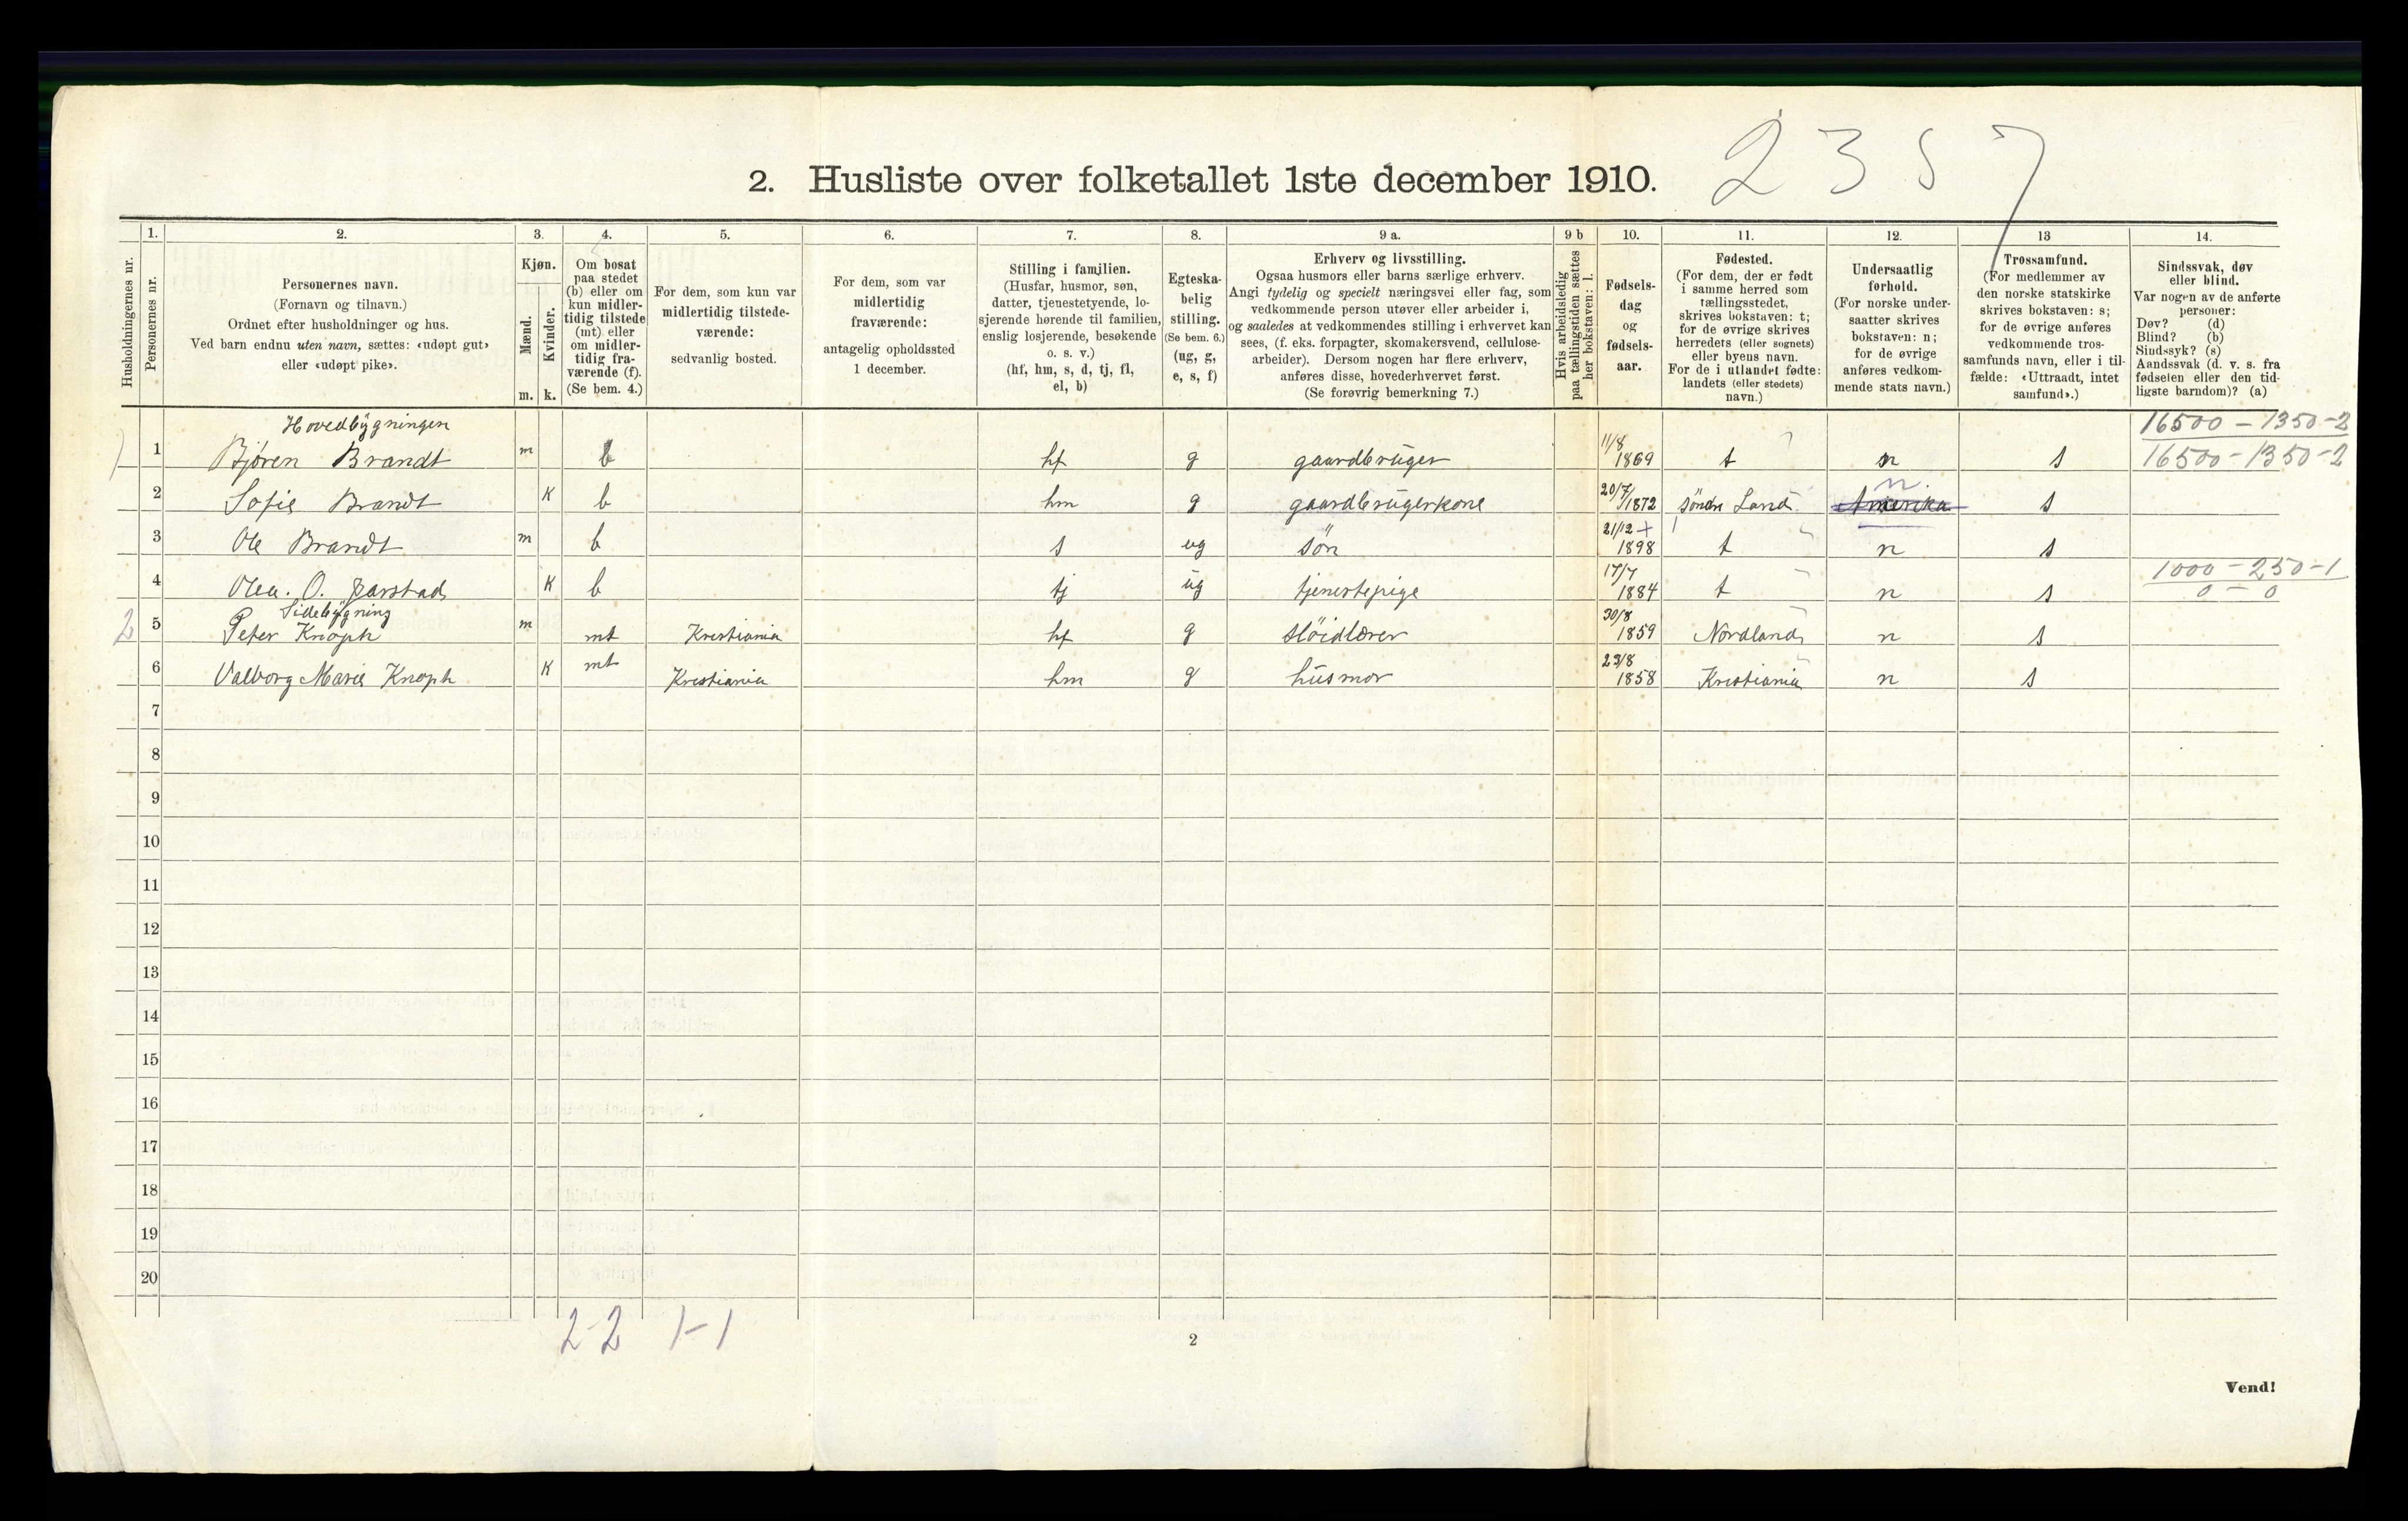 2357
2. Husliste over folketallet 1ste december 1910.
Husholdningernes nr.
1. Personernes nr.
2. Personernes navn.
(Fornavn og tilnavn.)
Ordnet efter husholdninger og hus.
Ved barn endnu uten navn, sættes: «udøpt gut»
eller «udøpt pike».
3. Kjøn.
Mænd. m.
Kvinder. k.
4. Om bosat
paa stedet
(b) eller om
kun midler-
tidig tilstede
(mt) eller
om midler-
tidig fra-
værende (f).
(Se bem. 4.)
5. For dem, som kun var
midlertidig tilstede-
værende:
sedvanlig bosted.
6. For dem, som var
midlertidig
fraværende:
antagelig opholdssted
1 december.
7. Stilling i familien.
(Husfar, husmor, søn,
datter, tjenestetyende, lo-
sjerende hørende til familien,
enslig losjerende, besøkende
o. s. v.)
(hf, hm, s, d, tj, fl,
el, b)
8. Egteska-
belig
stilling.
(Se bem. 6.)
(ug, g,
e, s, f)
9 a. Erhverv og livsstilling.
Ogsaa husmors eller barns særlige erhverv.
Angi tydelig og specielt næringsvei eller fag, som
vedkommende person utøver eller arbeider i,
og saaledes at vedkommendes stilling i erhvervet kan
sees, (f. eks. forpagter, skomakersvend, cellulose-
arbeider). Dersom nogen har flere erhverv,
anføres disse, hovederhvervet først.
(Se forøvrig bemerkning 7.)
9 b Hvis arbeidsledig
paa tællingstiden sættes
her bokstaven: l.
10. Fødsels-
dag
og
fødsels-
aar.
11. Fødested.
(For dem, der er født
i samme herred som
tællingsstedet,
skrives bokstaven: t;
for de øvrige skrives
herredets (eller sognets)
eller byens navn.
For de i utlandet fødte:
landets (eller stedets)
navn.)
12. Undersaatlig
forhold.
(For norske under-
saatter skrives
bokstaven: n;
for de øvrige
anføres vedkom-
mende stats navn.)
13 Trossamfund.
(For medlemmer av
den norske statskirke
skrives bokstaven: s;
for de øvrige anføres
vedkommende tros-
samfunds navn, eller i til-
fælde: «Uttraadt, intet
samfund».)
14. Sindssvak, døv
eller blind.
Var nogen av de anførte
personer:
Døv? (d)
Blind? (b)
Sindssyk? (s)
Aandssvak (d. v. s. fra
fødselen eller den tid-
ligste barndom)? (a)
Hovedbygningen 16500 - 1350 - 2
1 Bjøren Brandt m b hf g gaardbruger 11/8 1869 t n s 16500 - 1350 - 2
2 Sofie Brandt K b hm g gaardbrugerkone 20/7 1872 Søndre Land Amerika n s
3 Ole Brandt m b s ug søn 21/12 1898 t n s
1000 - 250 - 1
4 Olea. O. K b tj ug tjenestepige 17/7 1884 t n s 0 - 0
Sidebygning
2 5 Peter Knoph m mt Kristiania hf g sløidlærer 30/8 1859 Nordland n s
6 Valborg Marie Knoph K mt Kristiania hm g husmor 23/8 1858 Kristiania n s
7
8
9
10
11
12
13
14
15
16
17
18
19
20
2-2 1-1
2
Vend!